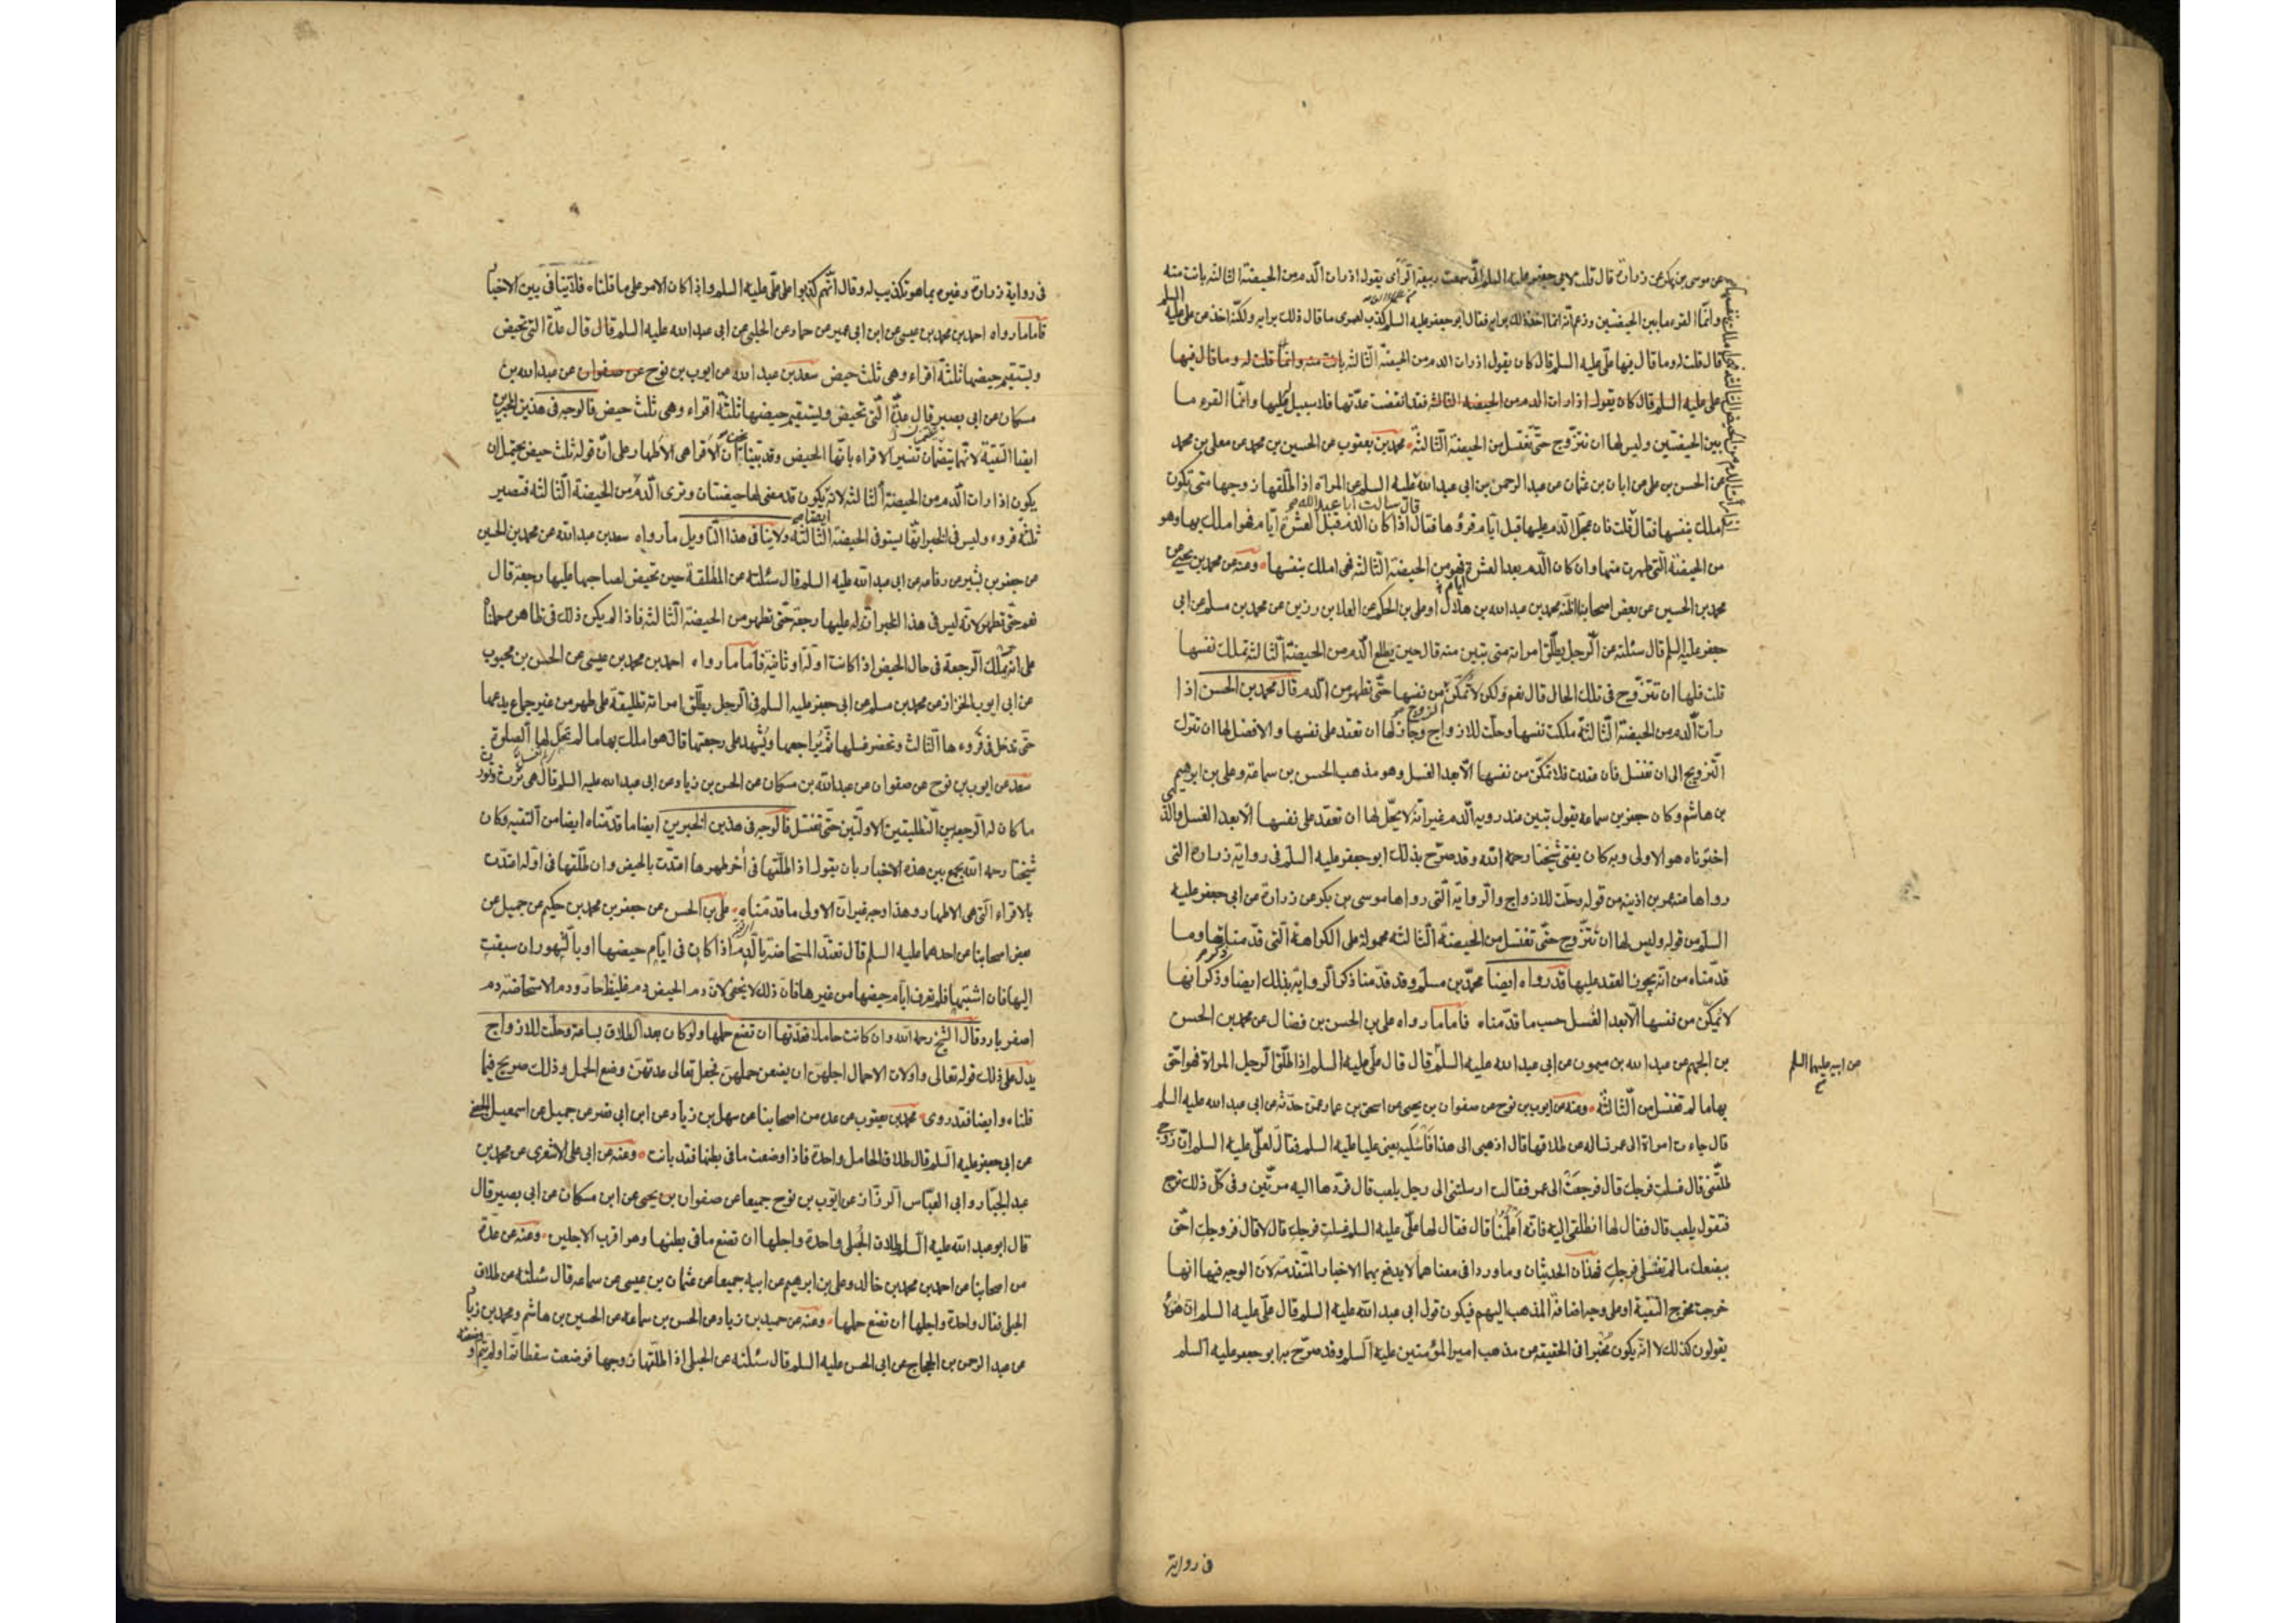 عن موسى بن بكر عن زرارة قال قلت لابي جعفر عليه السلم انى سمعت ربيعة الرأى يقول اذا رات الدم من الحيضة الثالثه بانت منه
وانما القرء ما بين الحيضتين وزعم انه انما اخذ ذلك برايه فقال ابو جعفر عليه السلم كذب لعمرى ما قال ذلك برايه ولكنه اخذ عن على عليه السلم
قال قلت له وما قال فيها على عليه السلم قال كان يقول اذا رات الدم من الحيضة الثالثه بانت منه وانما قلت له وما قال فيها
على عليه السلم قال كان يقول اذا رات الدم من الحيضه الثالثه فقد انقضت عدتها فلا سبيل له عليها وانما القرء ما
بين الحيضتين وليس لها ان تتزوج حتى تغتسل من الحيضة الثالثة محمد بن يعقوب عن الحسين بن محمد عن معلى بن محمد
عن الحسن بن على عن ابان بن عثمان عن عبد الرحمن بن ابى عبد الله عليه السلم عن المراة اذا طلقها زوجها متى تكون
قال سالت ابا عبد الله
املك بنفسها فقال قلت فان عجل الدم عليها قبل ايام قروها فقال اذا كان الدم قبل العشرة ايام فهو املك بها وهو
من الحيضة التى طهرت منها وان كان الدم بعد العشرة فهو من الحيضة الثالثه فهى املك بنفسها ومنه عن محمد بن يحيى عن
ايام
محمد بن الحسين عن بعض اصحابنا اظنه محمد بن عبد الله بن هلال او على بن الحكم عن العلا بن رزين عن محمد بن مسلم عن ابى
جعفر عليه السلم قال سئلته عن الرجل يطلق امراته متى تبين منه قال حين يطلع الدم من الحيضة الثالثة تملك نفسها
قلت فلها ان تتزوج فى تلك الحال قال نعم ولكن لا تمكن من نفسها حتى تطهر من الدم قال محمد بن الحسن اذا
الزوج
رات الدم من الحيضة الثالثة ملكت نفسها وحلت للازواج وجاز لها ان تعقد على نفسها والافضل لها ان تترك
التزويج الى ان تغتسل فان عقدت فلا تمكن من نفسها الا بعد الغسل وهو مذهب الحسن بن سماعة وعلى بن ابرهيم
بن هاشم وكان جعفر بن سماعه يقول تبين عند رويه الدم غير انه لا يحل لها ان تعقد على نفسها الا بعد الغسل والذى
اخترناه هو الاولى وبه كان يفتى شيخنا رحمه الله وقد صرح بذلك ابو جعفر عليه السلم فى رواية زرارة التى
رواها عنه عمر بن اذينه من قوله وحلت للازواج والرواية التى رواها موسى بن بكر عن زرارة عن ابى جعفر عليه
السلم من قوله وليس لها ان تتزوج حتى تغتسل من الحيضة الثالثه محمولة على الكراهة التى قدمناها وما
ذكرها
قدمناه من انه يجوز العقد عليها قد رواه ايضا محمد بن مسلم وقد قدمنا ذكر الرواية بذلك ايضا وذكر انها
لا تمكن من نفسها الا بعد الغسل حسب ما قدمناه فاما ما رواه على بن الحسن بن فضال عن محمد بن الحسن
بن الجهم عن عبد الله بن ميمون عن ابى عبد الله عليه السلم قال قال على عليه السلم اذا طلق الرجل المراة فهو احق
عن ابيه عليهما السلم
بها ما لم تغتسل من الثالثة ومنه عن ايوب بن نوح عن صفوان بن يحيى عن اسحق بن عمار عمن حدثه عن ابى عبد الله عليه السلم
قال جاءت امراة الى عمر تساله عن طلاقها قال اذهبى الى هذا فاسئليه يعنى عليا عليه السلم فقالت لعلى عليه السلم ان زوجى
طلقنى قال غسلت فرجك قال فرجعت الى عمر فقالت ارسلتنى الى رجل يلعب قال فردها اليه مرتين وفى كل ذلك ترجع
فتقول يلعب قال فقال لها انطلقى اليه فانه اعلمنا قال فقال لها على عليه السلم غسلت فرجك قال لا قال فزوجك احق
ببضعك ما لم تغسلى فرجك فهذان الحديثان وما ورد فى معناهما لا يدفع بهما الاخبار المتقدمة لان الوجه فيها انها
خرجت مخرج التقية او على وجه اضافة المذهب اليهم فيكون قول ابى عبد الله عليه السلم قال على عليه السلم ان هؤلاء
يقولون كذلك لا انه يكون مخبرا فى الحقيقه عن مذهب امير المؤمنين عليه السلم وقد صرح به ابو جعفر عليه السلم
فى رواية
فى رواية زرارة وغيره بما هو تكذيب له وقال انهم كذبوا على على عليه السلم واذا كان الامر على ما قلناه فلا تنافى بين الاخبار
فاما ما رواه احمد بن محمد بن عيسى عن ابن ابى عمير عن حماد عن الحلبى عن ابى عبد الله عليه السلم قال قال عدة التى تحيض
ويستقيم حيضها ثلثة اقراء وهى ثلث حيض سعد بن عبد الله عن ايوب بن نوح عن صفوان عن عبد الله بن
مسكان عن ابى بصير قال عدة التى تحيض ويستقيم حيضها ثلثة اقراء وهى ثلث حيض فالوجه فى هذين الخبرين
ايضا التقية لانهما يتضمان تفسير الاقراء بانها الحيض وقد بينا نحن ان الاقراء هى الاطهار وعلى ان قوله ثلث حيض يحتمل ان
يكون اذا رات الدم من الحيضة الثالثه لانه يكون قد مضى لها حيضتان وترى الدم من الحيضة الثالثه فتصير
ايضا
ثلثة قروء وليس فى الخبر انها يستوفى الحيضة الثالثه ولا ينافى هذا التاويل ما رواه سعد بن عبد الله عن محمد بن الحسين
عن جعفر بن بشير عن رفاعه عن ابى عبد الله عليه السلم قال سئلته عن المطلقة حين تحيض لصاحبها عليها رجعة قال
نعم حتى تطهر لانه ليس فى هذا الخبر ان له عليها رجعة حتى تطهر من الحيضة الثالثه فاذا لم يكن ذلك فى ظاهره حملناه
على انه يملك الرجعة فى حال الحيض اذا كانت اولة او ثانية فاما ما رواه احمد بن محمد بن عيسى عن الحسن بن محبوب
عن ابى ايوب الخزاز عن محمد بن مسلم عن ابى جعفر عليه السلم فى الرجل يطلق امراته تطليقة على طهر من غير جماع يدعها
حتى تدخل فى قروءها الثالث وتحضر غسلها ثم يراجعها ويشهد على رجعتها قال هو املك بها ما لم تحل لها الصلوة
سعد عن ايوب بن نوح عن صفوان عن عبد الله بن مسكان عن الحسن بن زياد عن ابى عبد الله عليه السلم قال هى ترث وتورث
ما كان له الرجعة بين التطليقتين الاولتين حتى تغتسل فالوجه فى هذين الخبرين ايضا ما قدمناه ايضا من التقيه وكان
شيخنا رحمه الله يجمع بين هذه الاخبار بان يقول اذا طلقها فى اخر طهرها اعتدت بالحيض وان طلقها فى اوله اعتدت
بالاقراء التى هى الاطهار وهذا وجه غير ان الاولى ما قدمناه على بن الحسن عن جعفر بن محمد بن حكيم عن جميل عن
بعض اصحابنا عن احدهما عليه السلم قال تعتد المستحاضة بالدم اذا كان فى ايام حيضها او بالشهور ان سبقت
اليها فان اشتبها فلم تعرف ايام حيضها من غيرها فان ذلك لا يخفى لان دم الحيض دم غليظ حار ودم الاستحاضة دم
اصفر بارد وقال الشيخ رحمه الله وان كانت حاملا فعدتها ان تضع حملها ولو كان بعد الطلاق بساعة وحلت للازواج
يدل على ذلك قوله تعالى واولات الاحمال اجلهن ان يضعن حملهن فجعل تعالى عدتهن وضع الحمل وذلك صريح فيما
قلناه وايضا فقد روى محمد بن يعقوب عن عده من اصحابنا عن سهل بن زياد عن ابن ابى نصر عن جميل عن اسمعيل الجعفى
عن ابى جعفر عليه السلم قال طلاق الحامل واحدة فاذا وضعت ما فى بطنها فقد بانت ومنه عن ابى على الاشعرى عن محمد بن
عبد الجبار وابى العباس الرزاز عن ايوب بن نوح جميعا عن صفوان بن يحيى عن ابن مسكان عن ابى بصير قال
قال ابو عبد الله عليه السلم طلاق الحبلى واحدة واجلها ان تضع ما فى بطنها وهو اقرب الاجلين ومنه عن عدة
من اصحابنا عن احمد بن محمد بن خالد وعلى بن ابرهيم عن ابيه جميعا عن عثمان بن عيسى عن سماعه قال سئلته عن طلاق
الحبلى فقال واحدة واجلها ان تضع حملها ومنه عن حميد بن زياد عن الحسن بن سماعه عن الحسين بن هاشم ومحمد بن زياد
عن عبد الرحمن بن الحجاج عن ابى الحسن عليه السلم قال سئلته عن الحبلى اذا طلقها زوجها فوضعت سقطا تم او لم يتم او وضعته